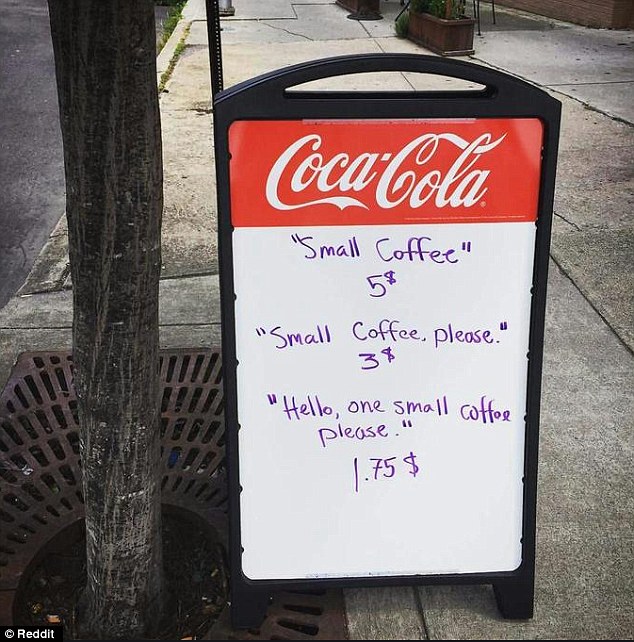 Coca-Cola
"Small Coffee"
5$
"Small Coffee, please."
3$
"Hello, one small coffee
please."
1.75 $
© Reddit